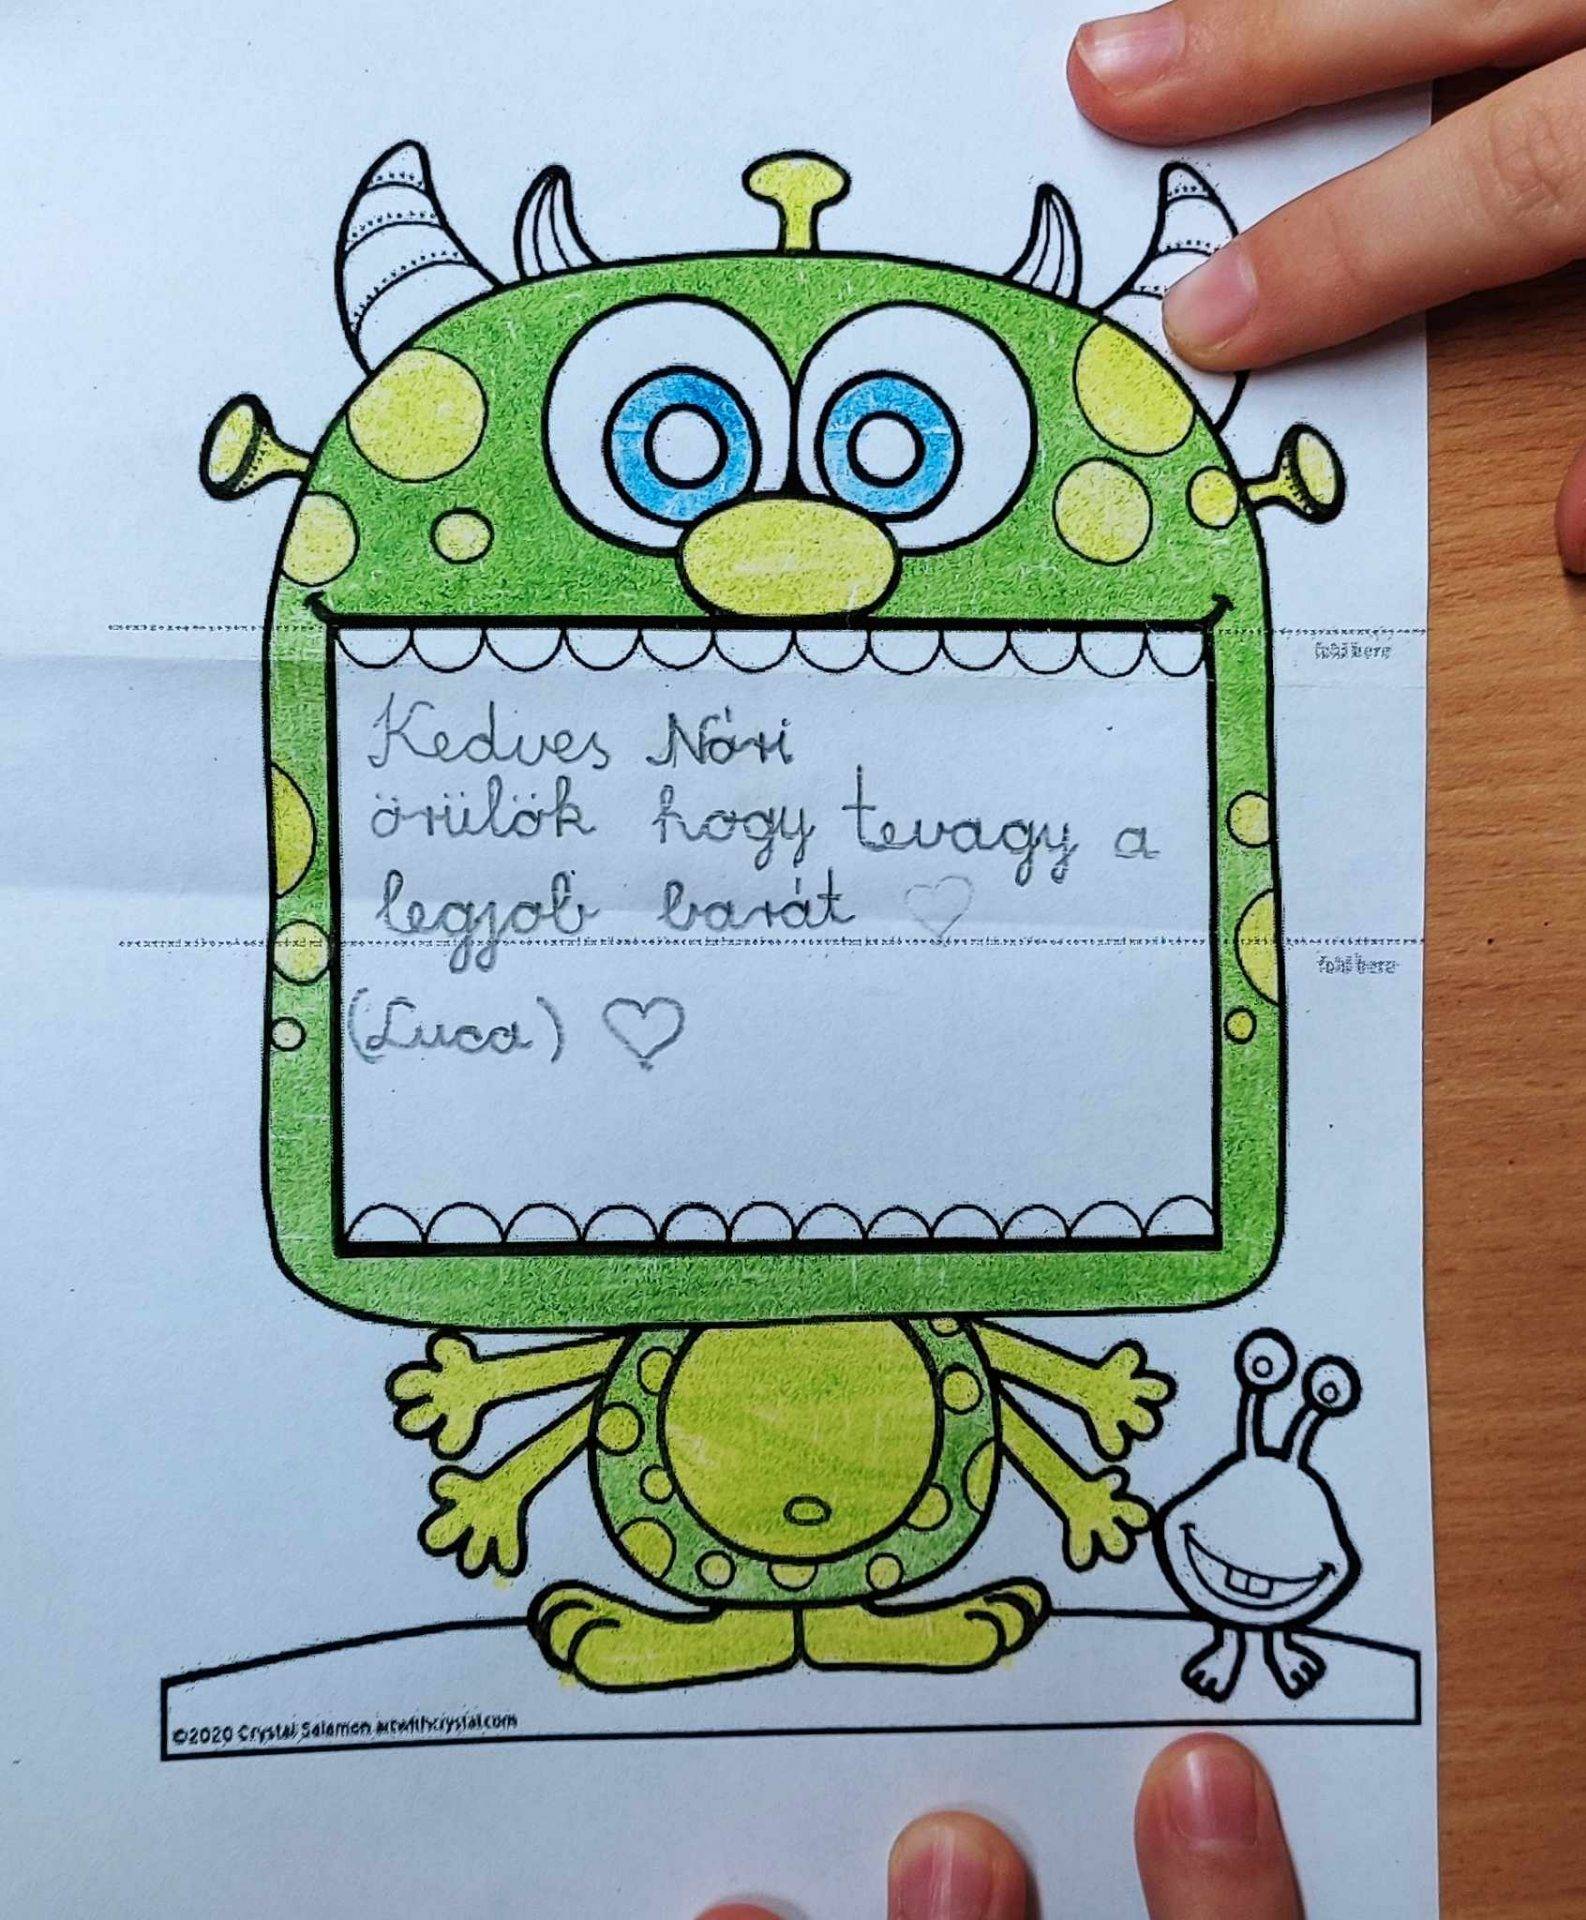 fold here
Kedves Nóri
örülök hogy tevagy a
legjob barát ♡
fold here
(Luca) ♡
©2020 Crystal Salamon artwithcrystal.com